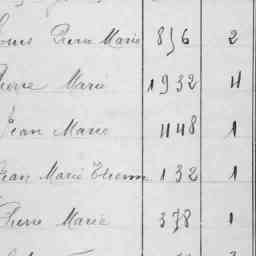 Louis Pierre Marie 856 2
Pierre Marie 1932 4
Jean Marie 448 1
Jean Marie Etienne 132 1
Pierre Marie 378 1